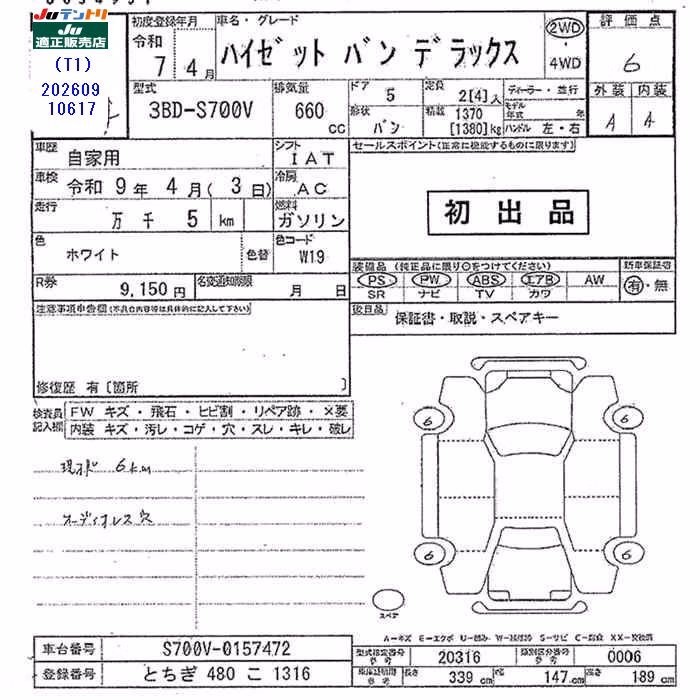 JUテントリ
JU
適正販売店
(T1)
202609
10617
初度登録年月
令和
7年 4月
車名・グレード
ハイゼット バン デラックス
2WD
・
4WD
評価点
6
外装 内装
A A
型式
3BD-S700V
排気量
660
CC
ドア
5
形状
バン
定員
2[4]人
積載
1370
[1380]kg
ディーラー・並行
モデル
年式 年
ハンドル 左・右
車歴
自家用
シフト
IAT
車検
令和 9年 4月( 3日)
冷房
AC
走行
万 千 5 km
燃料
ガソリン
色
ホワイト
色替
色コード
W19
R券
9,150円
名変通知期限
月 日
セールスポイント(正常に機能するものに限ります)
初出品
装備品 (純正品に限り○をつけてください)
PS PW ABS エアB AW
SR ナビ TV カワ
新車保証書
有・無
後日品
保証書・取説・スペアキー
注意事項申告欄(不具合内容等は具体的に記入して下さい)
修復歴 有〔箇所 〕
検査員
記入欄
FW キズ・飛石・ヒビ割・リペア跡・×要
内装 キズ・汚レ・コゲ・穴・スレ・キレ・破レ
現状 6km
オーディオレス穴
6 6
6 6
スペア
A-キズ E-エクボ U-凹み W-波 S-サビ C-腐食 XX-交換済
車台番号
S700V-0157472
登録番号
とちぎ 480 こ 1316
型式指定番号
参考
20316
類別区分番号
参考
0006
長さ 339cm 幅 147cm 高さ 189cm